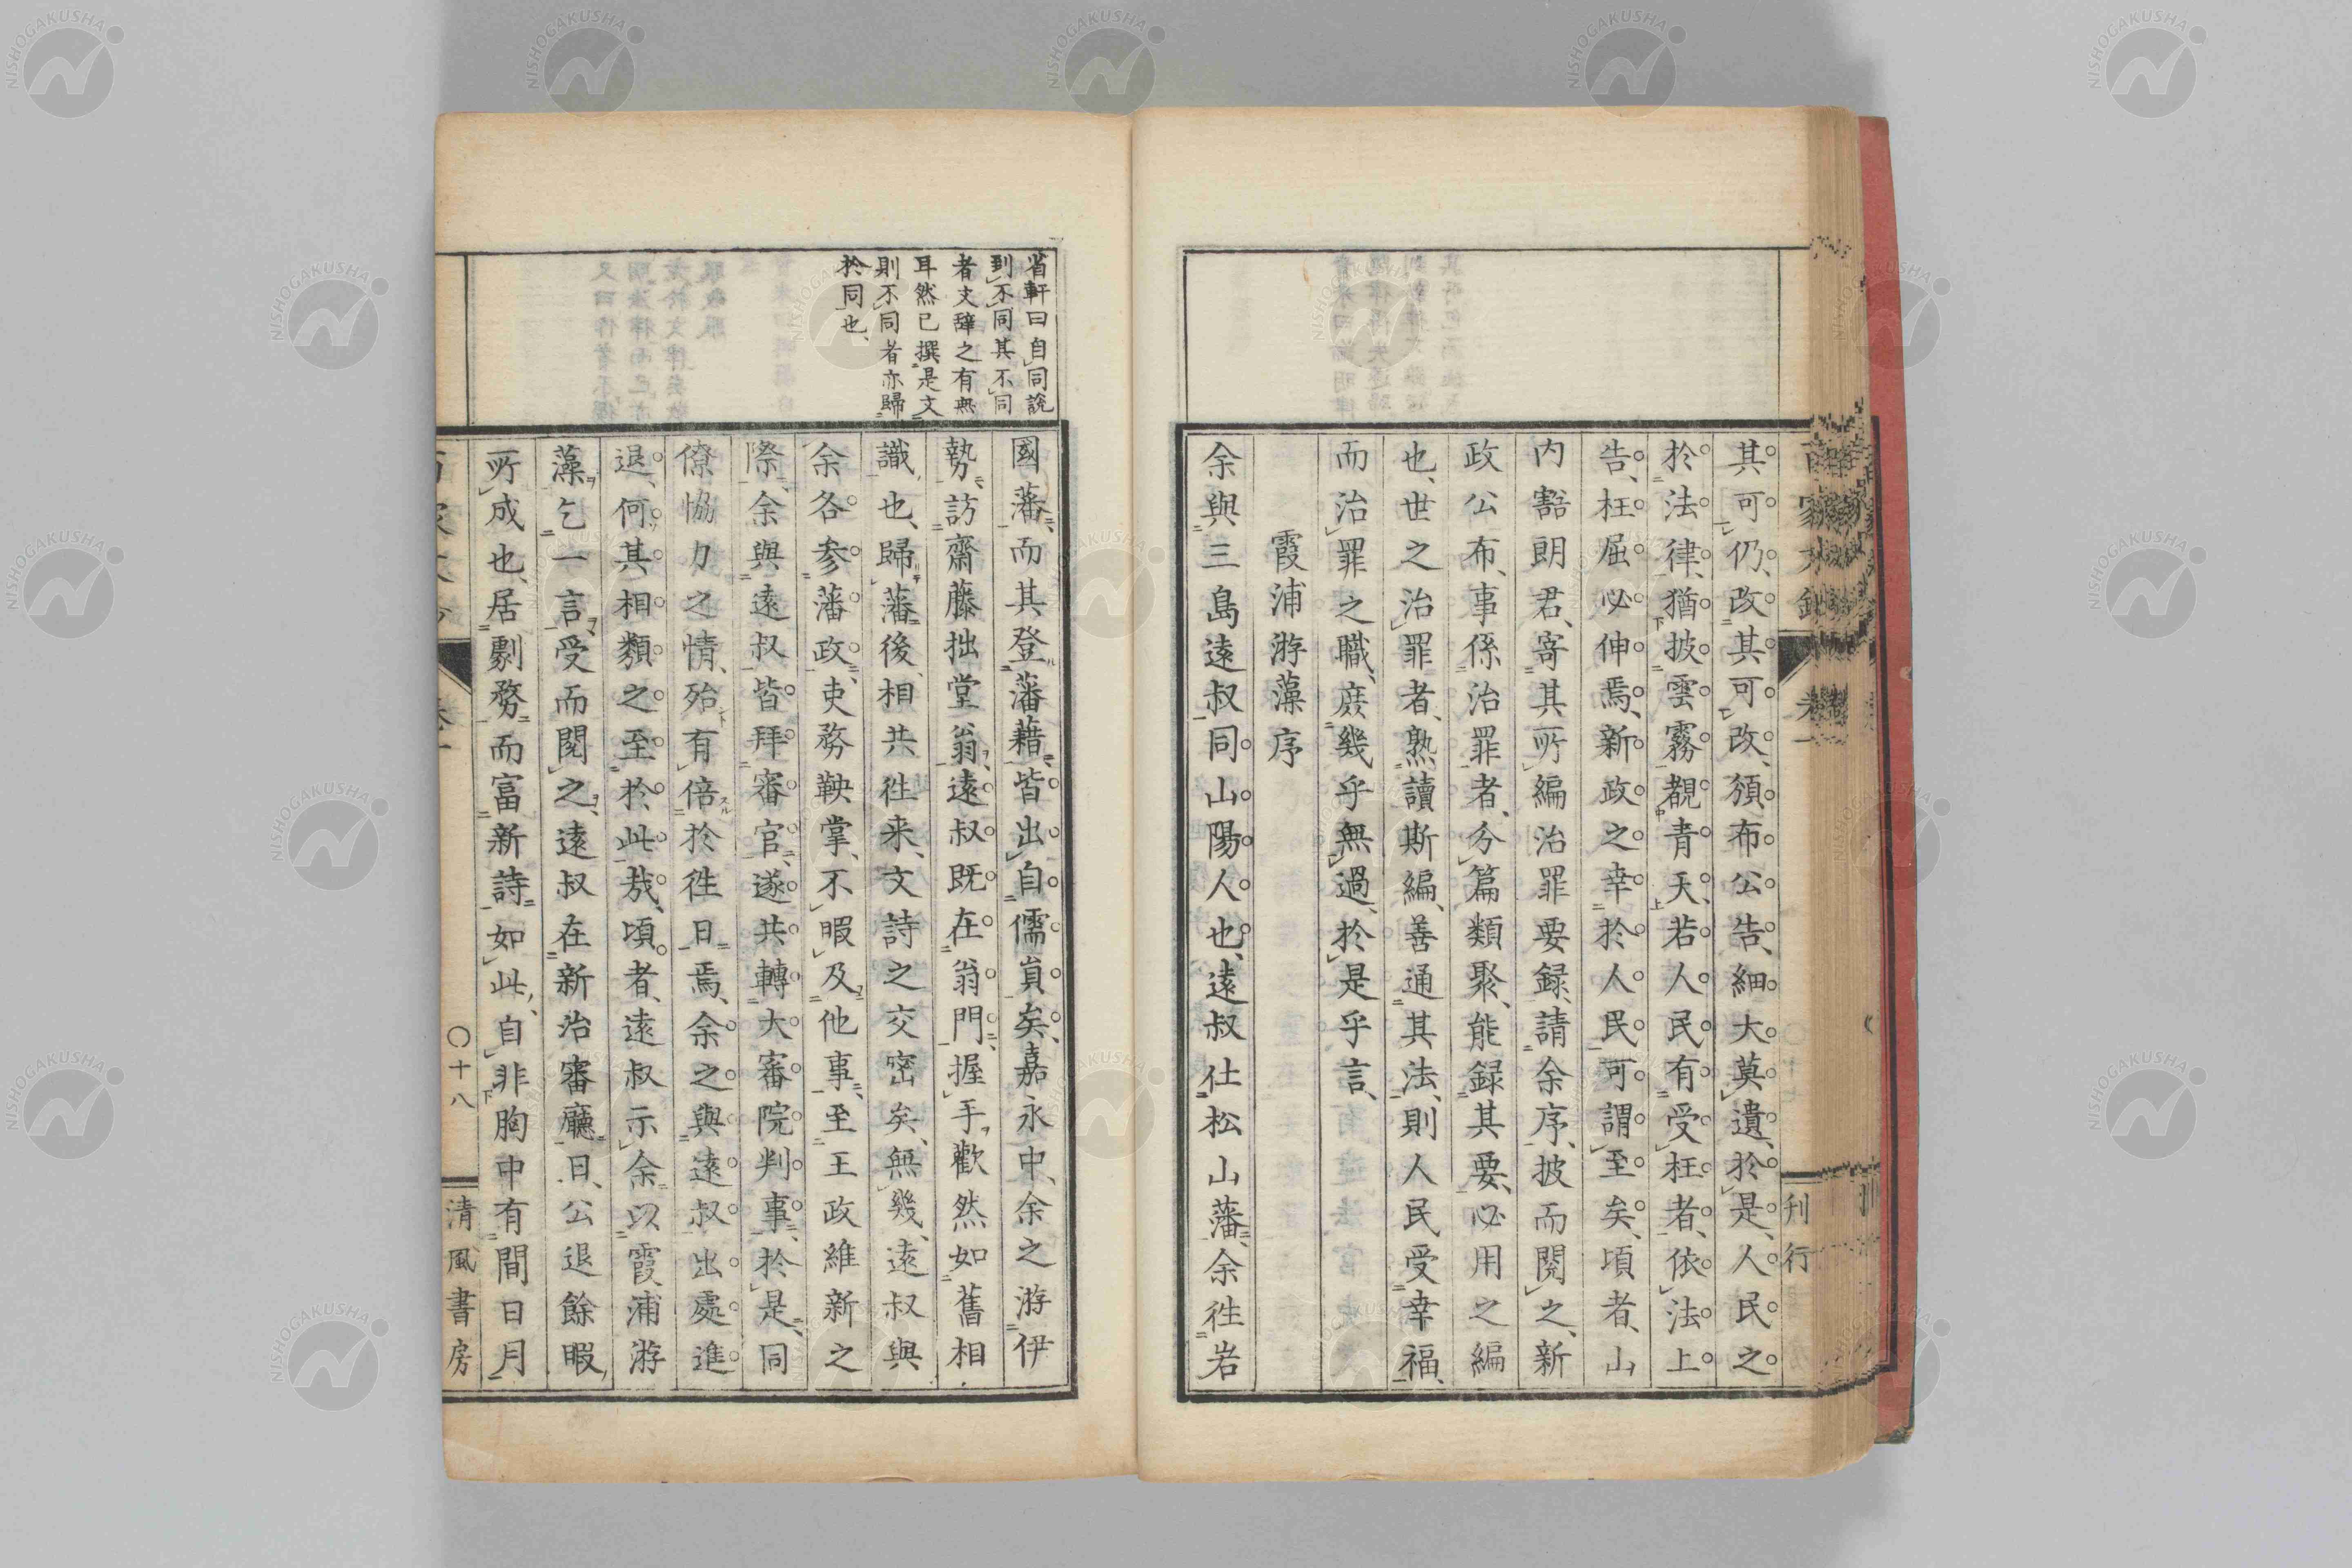 其可仍、改其可改、頒布公告、細大莫遺、於是、人民之
於法律、猶披雲霧覩青天、若人民有受枉者、依法上
告、枉屈必伸焉、新政之幸於人民可謂至矣、頃者、山
内豁朗君、寄其所編治罪要録、請余序、披而閲之、新
政公布、事係治罪者、分篇類聚、能録其要、必用之編
也、世之治罪者、熟讀斯編、善通其法、則人民受幸福、
而治罪之職、庶幾乎無過、於是乎言、
霞浦游藻序
余與三島遠叔同山陽人也、遠叔仕松山藩、余徃岩
國藩、而其登藩籍、皆出自儒員矣、嘉永中、余之游伊
勢、訪齋藤拙堂翁、遠叔既在翁門、握手歡然如舊相
識也、歸藩後、相共徃来、文詩之交密矣、無幾、遠叔與
余各参藩政、吏務鞅掌、不暇及他事、至王政維新之
際、余與遠叔皆拜審官、遂共轉大審院判事、於是、同
僚協力之情、殆有倍於徃日焉、余之與遠叔出處進
退、何其相類之至於此哉、頃者、遠叔示余以霞浦游
藻、乞一言、受而閲之、遠叔在新治審廳日、公退餘暇
所成也、居劇務而富新詩如此、自非胸中有間日月
省軒曰自同説
到不同其不同
者文辭之有無
耳然已撰是文
則不同者亦歸
於同也、
百家文鈔 卷一
刊行
〇十八
清風書房